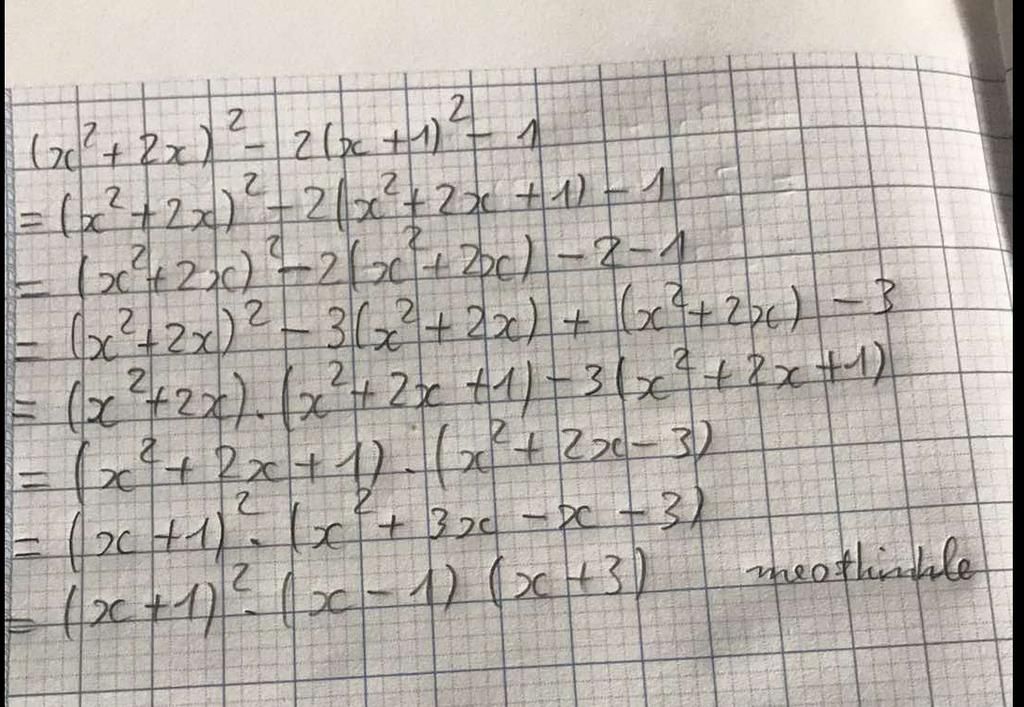 (x² + 2x)² - 2(x + 1)² - 1
= (x² + 2x)² - 2(x² + 2x + 1) - 1
= (x² + 2x)² - 2(x² + 2x) - 2 - 1
= (x² + 2x)² - 3(x² + 2x) + (x² + 2x) - 3
= (x² + 2x).(x² + 2x + 1) - 3(x² + 2x + 1)
= (x² + 2x + 1).(x² + 2x - 3)
= (x + 1)².(x² + 3x - x - 3)
= (x + 1)².(x - 1)(x + 3)